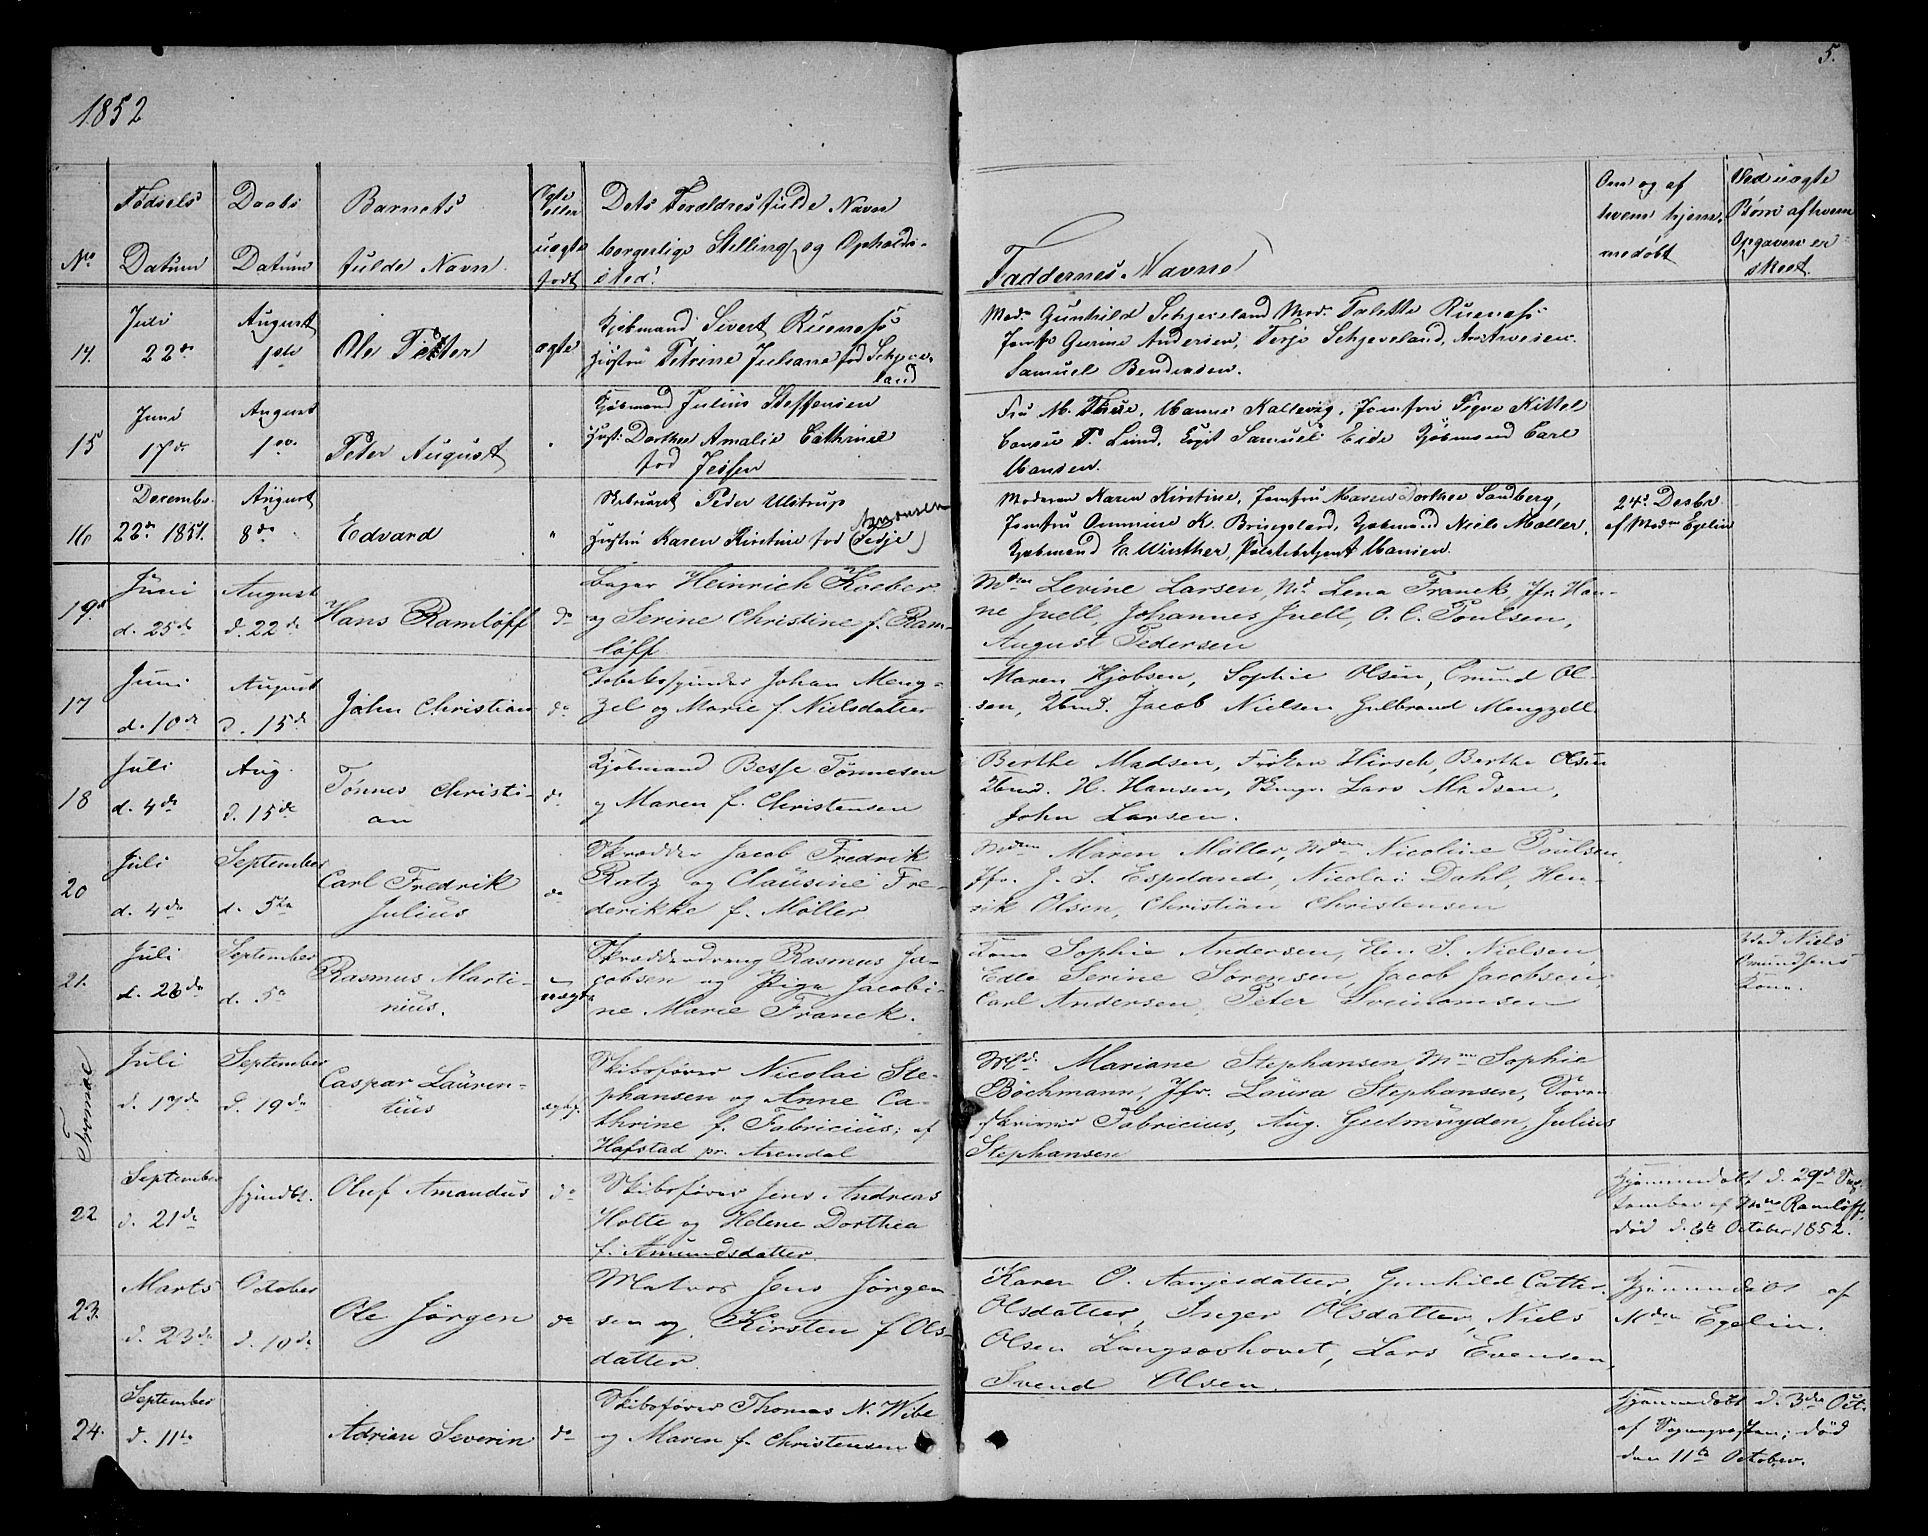 5.
1852
No
Fødsels Datum
Daabs Datum
Barnets fulde Navn
Ægte eller uægte født
Dets Forældres fulde Navn
borgerlige Stilling og Opholds-
sted.
Faddernes Navne
Om og af hvem hjemmedøbt
Ved uægte Børn af hvem Opgaven er skeet.
14. Juli 22de August 1ste Ole Petter ægte
Kjøbmand Sivert Ruenæss
Hustru Petrine Juliane fød Schjeve-
land
Mad. Gunhild Schjeveland Mad. Talette Ruenæss
Jomf. Gurine Andersen, Terje Schjeveland,
Samuel Bendixsen.
15 Juni 17de August 1ste Peter August "
Kjøbmand Julius Steffensen
Hust. Dorthea Amalie Cathrine
fød Jessen
Fru M. Thue, Hanne Kallevig, Jomfru Signe Kittel
Consul P. Lund, Samuel Eide Kjøbmand Carl
Hansen.
16 Decembr. 22de 1851. August 8de Edvard "
Peder Ulstrup
Hustru Karen Kirstine fød (Tedje) Amonsen
Moderen Karen Kirstine, Jomfru Maren Dorthea Sandberg,
Jomfru K. Bringeland, Kjøbmand Niels Møller,
Kjøbmand E. Winther, Politibetjent Hansen.
24d Decbr
af Madm Egelin
19. Juni d. 25de August d. 22de Hans Ramløff do
Bager Heinrich Koeber
og Serine Christine f. Ram-
løff
Mdm Levine Larsen, Md. Lena Franck, Jfr. Han-
ne Juell, Johannes Juell, O. C. Poulsen,
August Pedersen
17 Juni d. 10de August d. 15de John Christian do
Tobaksspinder Johan Meng-
zel og Marie f. Nielsdatter
Maren Hjobsen, Sophie Olsen, Omund Ol-
sen, Jacob Nielsen, Gulbrand Mengzell.
18 Juli d. 4de Aug. d. 15de Tønnes Christi-
an do
Kjøbmand Besse Tønnesen
og Maren f. Christensen
Berthe Madsen, Frøken Hirsch, Berthe Olsen
H. Hansen, Lars Madsen,
John Larsen.
20 Juli d. 4de September d. 5te Carl Fredrik
Julius do
Skrædder Jacob Fredrik
Ratz og Clausine Fre-
derikke f. Møller
Mdm Maren Møller, Mdm Nicoline Poulsen,
Jfr. J. S. Espeland, Nicolai Dahl, Hen-
rik Olsen, Christian Christensen
21. Juli d. 26de September d. 5te Rasmus Marti-
nius. uægte
Skrædderdreng Rasmus Ja-
cobsen og Pige Jacobi-
ne Marie Franck.
Kone Sophie Andersen, Elen S. Nielsen,
Eda Serine Sørensen, Jacob Jacobsen,
Carl Andersen, Peter Sveinamsen
Ved Niels
Omundsens
Kone.
Tromøe Juli d. 17de September d. 19de Caspar Lauren-
tius ægte
Skibsfører Nicolai Ste-
phansen og Anne Ca-
thrine f. Fabricius; af
Hafstad pr. Arendal
Md. Mariane Stephansen, Mm Sophie
Bochmann, Jfr. Laura Stephansen, Soren-
skriver Fabricius, Aug. Gulmuyden, Julius
Stephansen
22 September d. 21de hjemdbt. Oluf Amandus do
Skibsfører Jens Andreas
Holte og Helene Dorthea
f. Amundsdatter
Hjemmedøbt d. 29de Sep-
tember af Mm Ramløff,
død d. 6te October 1852.
23. Marts d. 23de October d. 10de Ole Jørgen do
Matros Jens Jørgen-
sen og Kirsten f Ols-
datter
Karen O. Aanjesdatter, Gunhild Cathr.
Olsdatter, Inger Olsdatter, Niels
Olsen Langsævhovet, Lars Evensen,
Svend Olsen.
Hjemmedøbt af
Mdm Egelin.
24. September d. 11te Adrian Severin do
Skibsfører Thomas N. Wibe
og Maren f. Christensen
Hjemmedøbt d. 3die Oct.
af Sognepræsten; død
den 11te October.